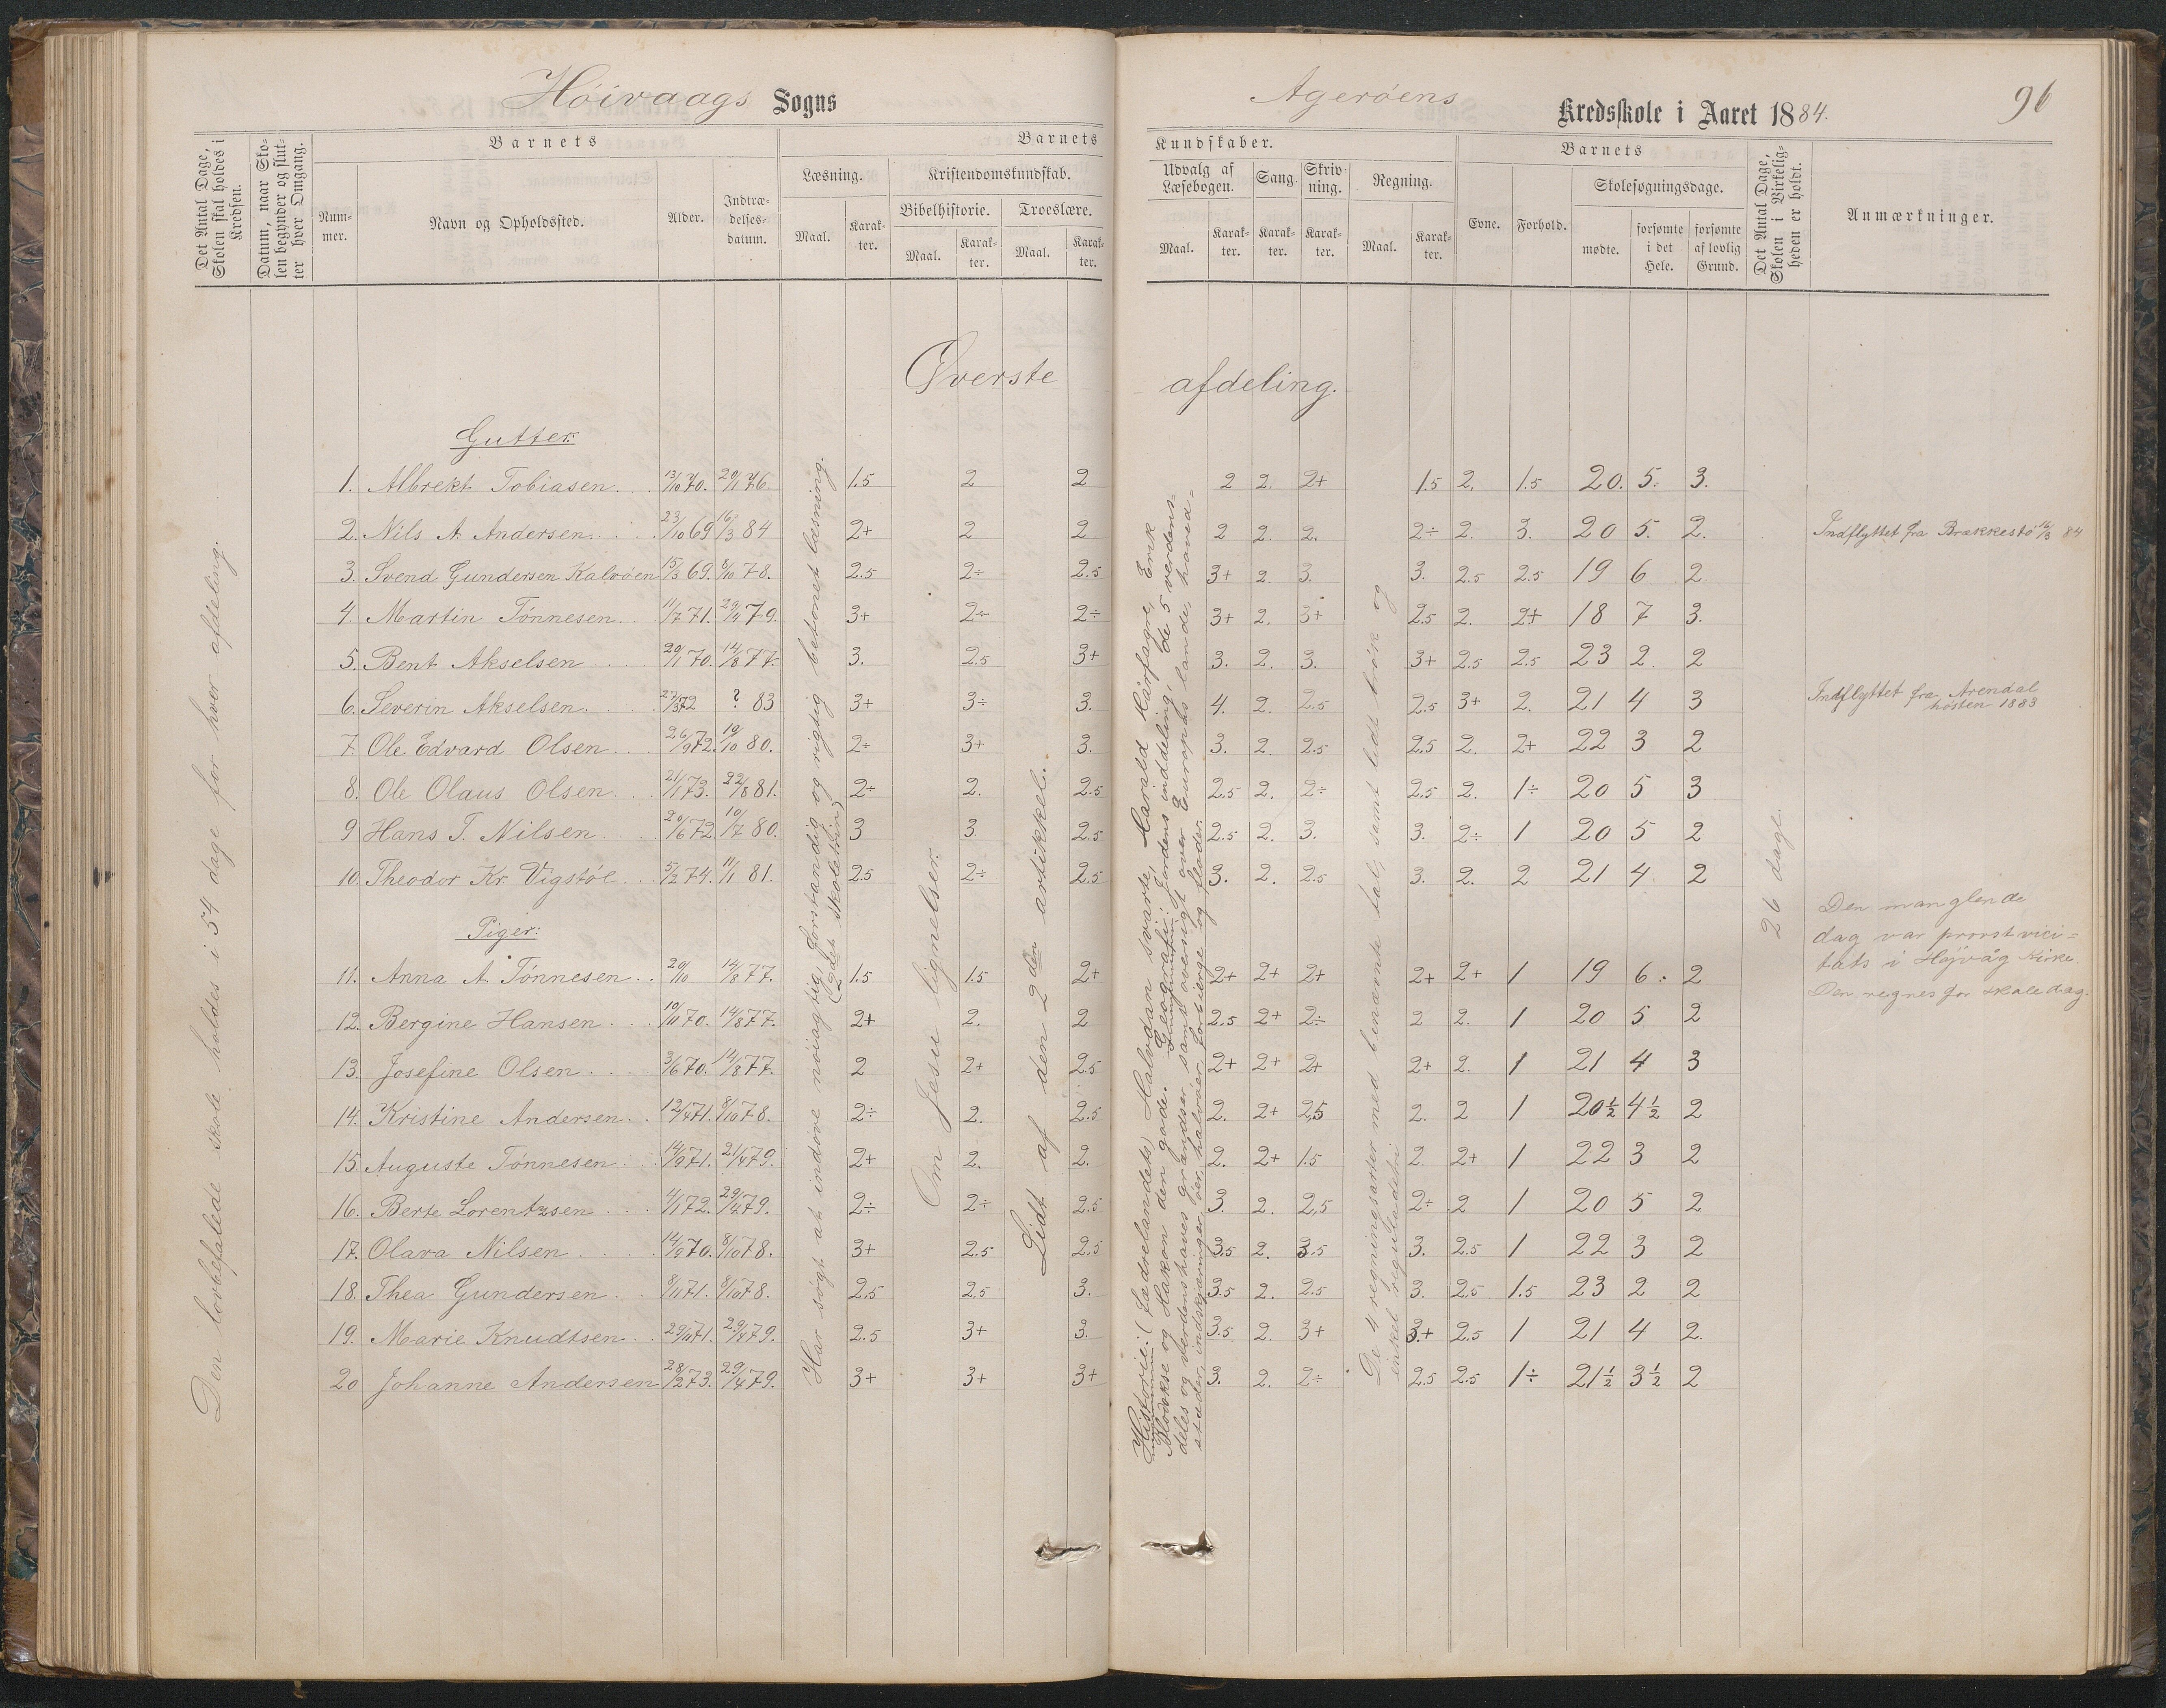 Høivaags Sogns
Agerøens Kredsskole i Aaret 1884.
96
Det Antal Dage, Skolen skal holdes i Kredsen.
Datum, naar Skolen begynder og slutter hver Omgang.
Barnets
Nummer.
Navn og Opholdssted.
Alder.
Indtrædelsesdatum.
Barnets
Læsning.
Maal.
Karakter.
Kristendomskundskab.
Bibelhistorie.
Maal.
Karakter.
Troeslære.
Maal.
Karakter.
Kundskaber.
Udvalg af Læsebogen.
Maal.
Karakter.
Sang.
Karakter.
Skrivning.
Karakter.
Regning.
Maal.
Karakter.
Barnets
Evne.
Forhold.
Skolesøgningsdage.
mødte.
forsømte i det Hele.
forsømte af lovlig Grund.
Det Antal Dage, Skolen i Virkeligheden er holdt.
Anmærkninger.
Øverste afdeling.
Den lovbefalede skole holdes i 54 dage for hver afdeling.
Gutter:
1. Albrekt Tobiasen 13/10 70. 20/11 76. 1.5 2 2 2 2. 2+ 1.5 2. 1.5 20. 5. 3.
2. Nils A. Andersen 23/10 69 16/3 84 2+ 2 2 2 2. 2. 2÷ 2. 3. 20 5. 2. Indflyttet fra Brækkestø 16/3 84
3. Svend Gundersen Kalvøen 15/3 69. 8/10 78. 2.5 2÷ 2.5 3+ 2. 3. 3. 2.5 2.5 19 6 2.
4. Martin Tønnesen 11/7 71. 29/4 79. 3+ 2÷ 2÷ 3+ 2. 3+ 2.5 2. 2+ 18 7 3.
5. Bent Akselsen 20/1 70. 14/8 77. 3. 2.5 3+ 3. 2. 3. 3+ 2.5 2.5 23 2. 2
6. Severin Akselsen 27/3 72 ? 83 3+ 3÷ 3. 4. 2. 2.5 2.5 3+ 2. 21 4 3 Indflyttet fra Arendal høsten 1883
7. Ole Edvard Olsen 26/9 72. 19/10 80. 2÷ 3+ 3. 3. 2. 2.5 2.5 2. 2+ 22 3 2
8. Ole Olaus Olsen 21/1 73. 22/8 81. 2÷ 2. 2.5 2.5 2. 2÷ 2.5 2. 1÷ 20 5 3
9 Hans T. Nilsen 20/6 72. 10/7 80. 3 3. 2.5 2.5 2. 3. 3. 2÷ 1 20 5 2
10. Theodor Kr. Vigstøl 5/2 74. 11/1 81. 2.5 2÷ 2.5 3. 2. 2.5 3. 2. 2 21 4. 2
Piger:
11. Anna A. Tønnesen 20/10 14/8 77. 1.5 1.5 2+ 2+ 2+ 2+ 2+ 2+ 1 19 6. 2
12. Bergine Hansen 10/11 70. 14/8 77. 2+ 2. 2 2.5 2+ 2÷ 2 2. 1 20 5 2
13. Josefine Olsen 3/6 70. 14/8 77. 2 2+ 2.5 2+ 2+ 2+ 2+ 2. 1 21 4 3
14. Kristine Andersen 12/4 71. 8/10 78. 2÷ 2. 2.5 2. 2+ 2,5 2. 2 1 20½ 4½ 2
15. Auguste Tønnesen 14/9 71. 21/4 79. 2+ 2. 2. 2. 2+ 1.5 2. 2+ 1 22 3 2
16. Berte Lorentzsen 4/1 72. 29/4 79. 2÷ 2÷ 2.5 3. 2. 2,5 2÷ 2 1 20 5 2
17. Olava Nilsen 14/9 70. 8/10 78. 3+ 2.5 2.5 3.5 2. 3.5 3. 2.5 1 22 3 2
18. Thea Gundersen 8/11 71. 8/10 78. 2.5 2,5 3. 3.5 2. 2.5 3. 2.5 1.5 23 2 2
19. Marie Knudtsen 29/11 71. 29/4 79. 2.5 3+ 3. 3.5 2. 3+ 3.+ 2.5 1 21 4 2.
20 Johanne Andersen 28/2 73. 29/4 79. 3+ 3+ 3+ 3. 2. 2÷ 2.5 2.5 1÷ 21½ 3½ 2
Har søgt at indøve nøiagtig, forstandig og rigtig betonet læsning.
(2det skoletrin)
Om Jesu lignelser.
Lidt af den 2den artikkel.
Historie: (Fædrelandets) Halvdan svarte, Harald Hårfagre, Erik
Blodøkse og Håkon den gode. Geografi: Jordens inddeling, de 5 verdens-
deles og verdenshaves grændser, samt oversigt over Europas lande, hoved-
stæder, indskjæringer, øer, halvøer, forbjerge og floder.
De 4 regningsarter med benævnte tal, samt lidt brøk og
enkel reguladetri
26 dage.
Den manglende
dag var provstvici-
tats i Høivåg Kirke.
Den regnes for skoledag.